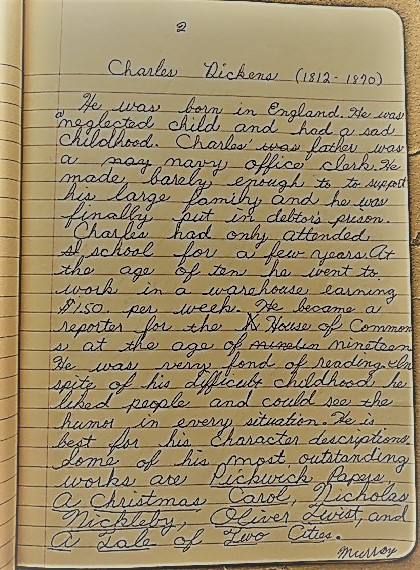 2
Charles Dickens (1812-1870)
He was born in England. He was
a neglected child and had a sad
childhood. Charles' was father was
a nay navy office clerk. He
made barely enough to to support
his large family and he was
finally put in debtor's prison.
Charles had only attended
school for a few years. At
the age of ten he went to
work in a warehouse earning
$1.50. per week. He became a
reporter for the House of Common
s at the age of ninetein nineteen
He was very fond of reading. In
spite of his difficult childhood he
liked people and could see the
humor in every situation. He is
best for his character descriptions.
Some of his most outstanding
works are Pickwick Papers,
A Christmas Carol, Nicholas
Nickleby, Oliver Twist, and
A Tale of Two Cities.
Murray